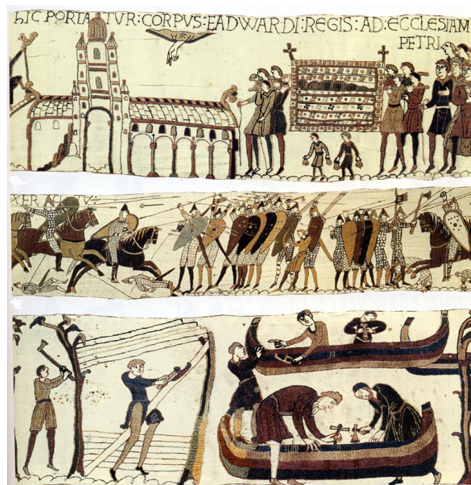 hIC PORTATUR: CORPUS: EADWARDI: REGIS: AD: ECCLESIAM
PETRI
XER